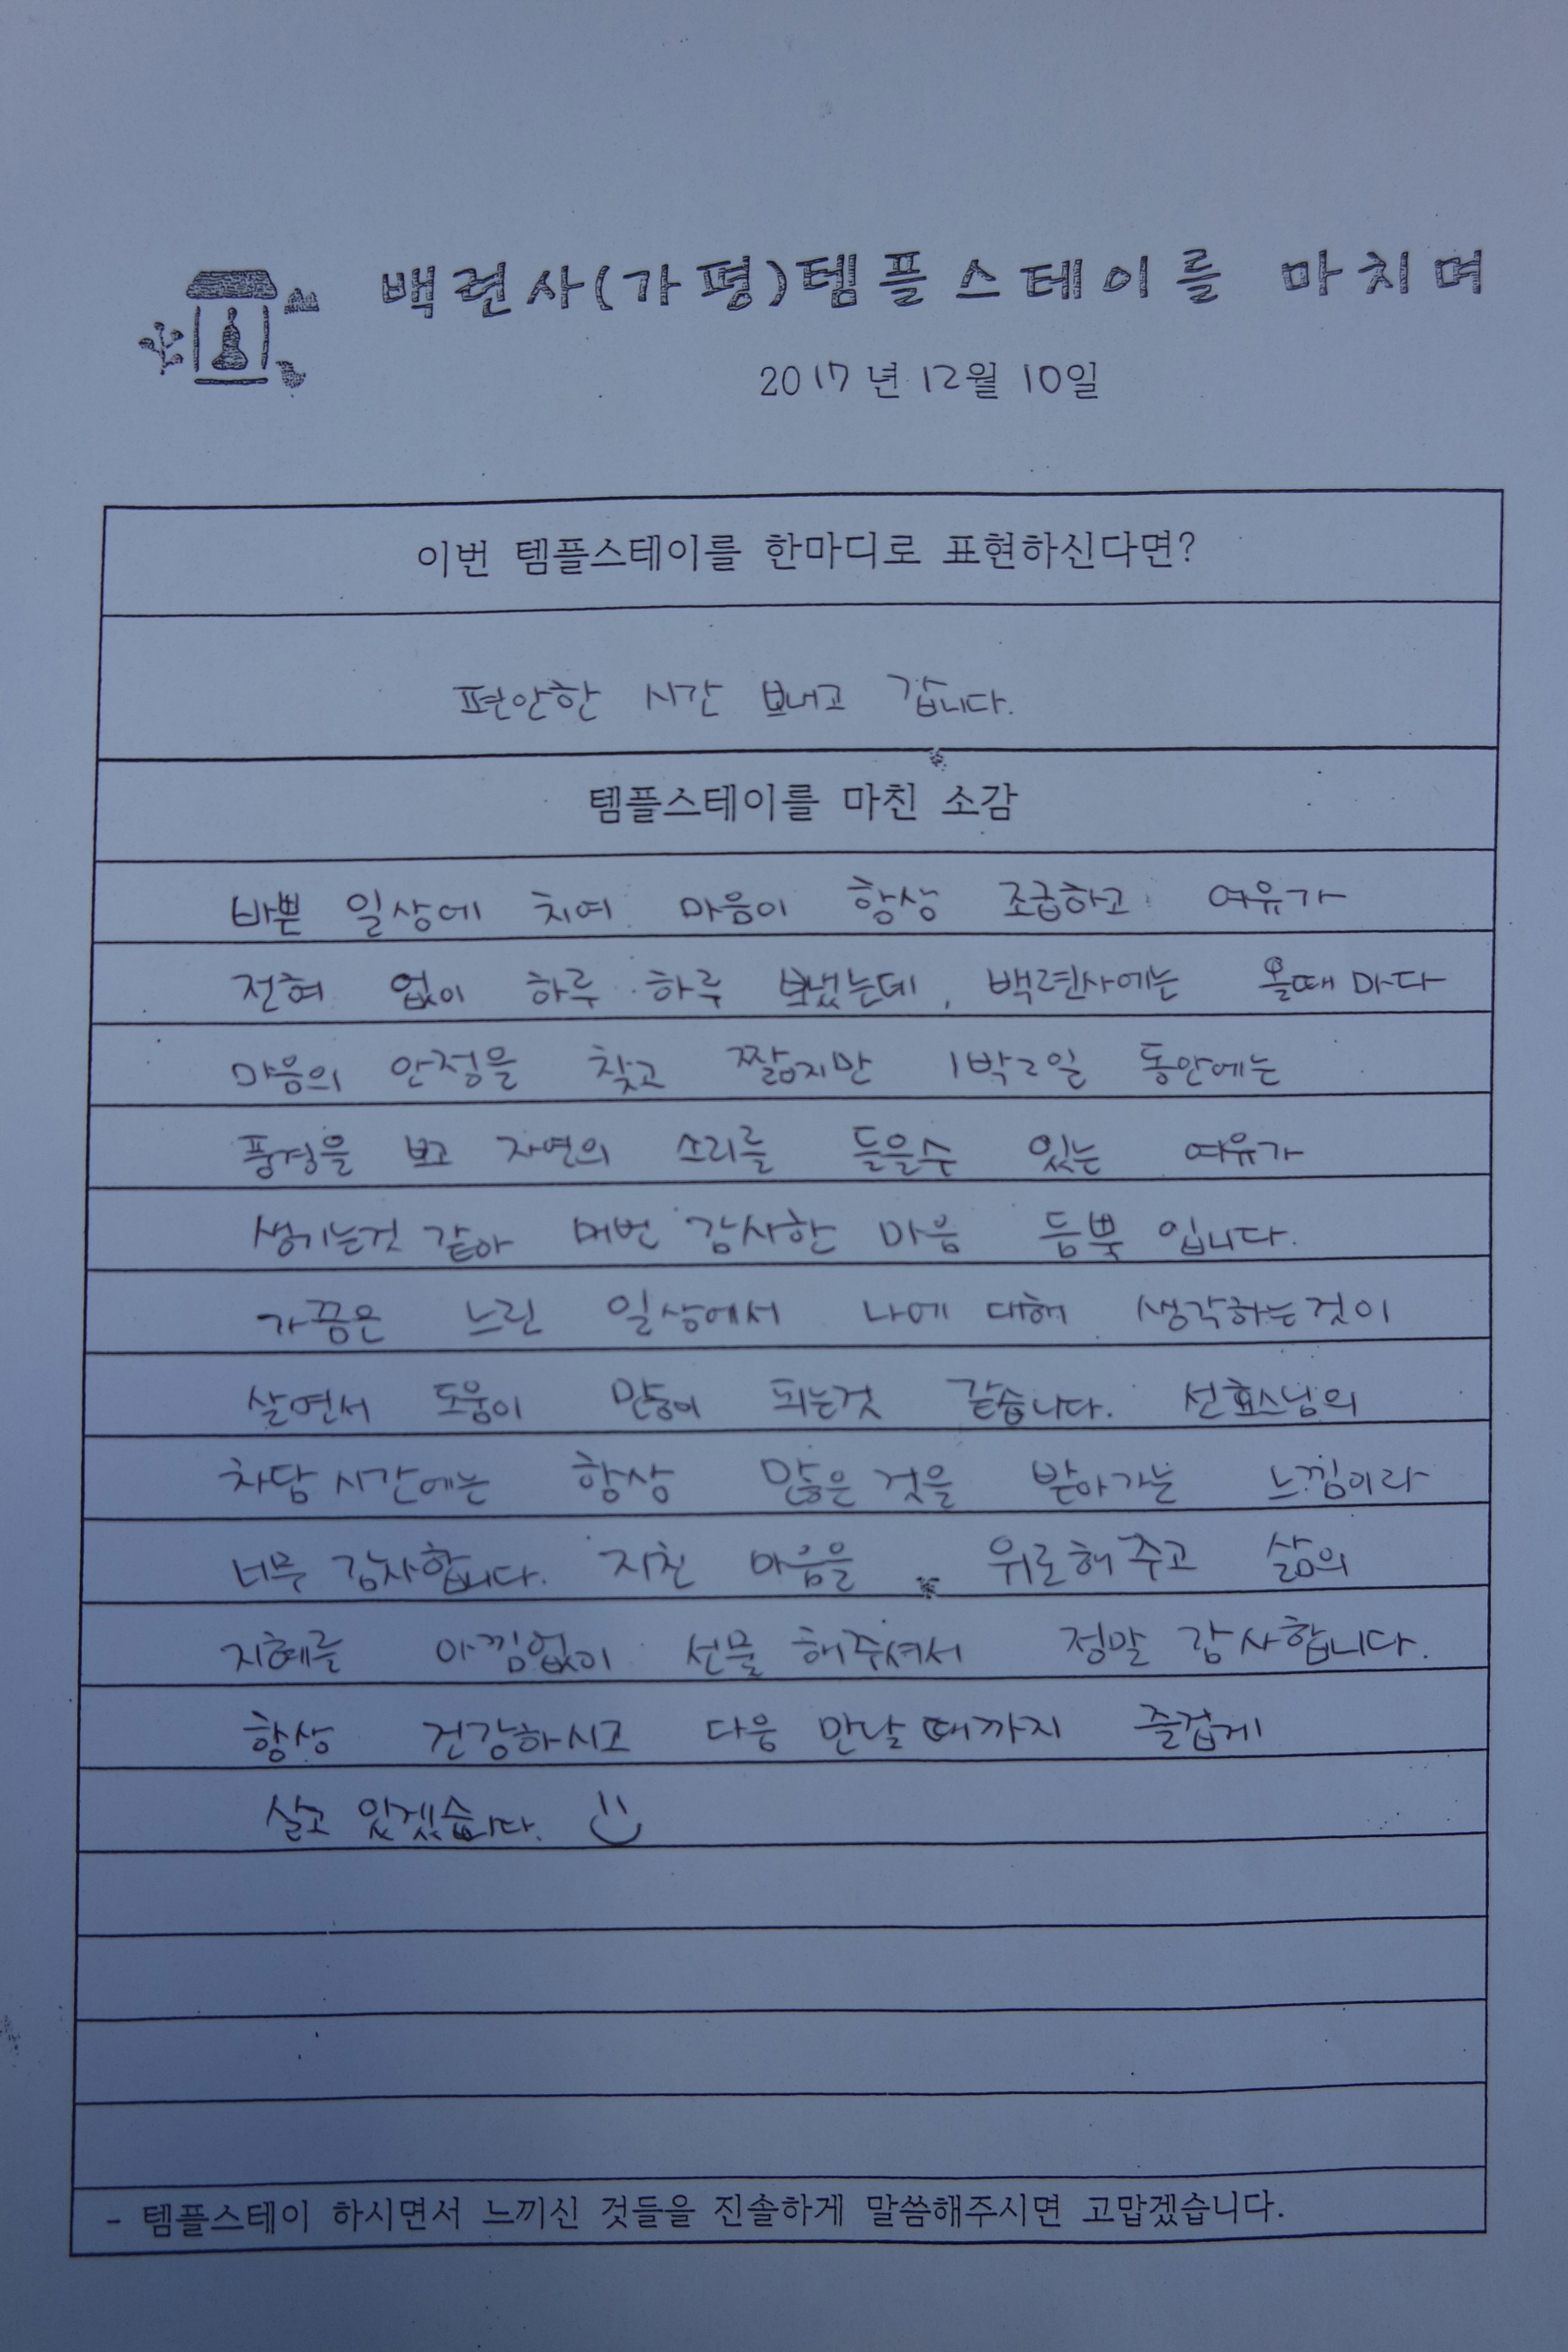 백련사(가평)템플스테이를 마치며
2017년 12월 10일
이번 템플스테이를 한마디로 표현하신다면?
편안한 시간 보내고 갑니다.
템플스테이를 마친 소감
바쁜 일상에 치여 마음이 항상 조급하고 여유가
전혀 없이 하루 하루 보냈는데, 백련사에는 올때 마다
마음의 안정을 찾고 짧지만 1박2일 동안에는
풍경을 보고 자연의 소리를 들을수 있는 여유가
생기는것 같아 매번 감사한 마음 듬뿍 입니다.
가끔은 느린 일상에서 나에 대해 생각하는것이
살면서 도움이 많이 되는것 같습니다. 선효스님의
차담 시간에는 항상 많은 것을 받아가는 느낌이라
너무 감사합니다. 지친 마음을 위로해 주고 삶의
지혜를 아낌없이 선물 해주셔서 정말 감사합니다.
항상 건강하시고 다음 만날 때까지 즐겁게
살고 있겠습니다.
- 템플스테이 하시면서 느끼신 것들을 진솔하게 말씀해주시면 고맙겠습니다.